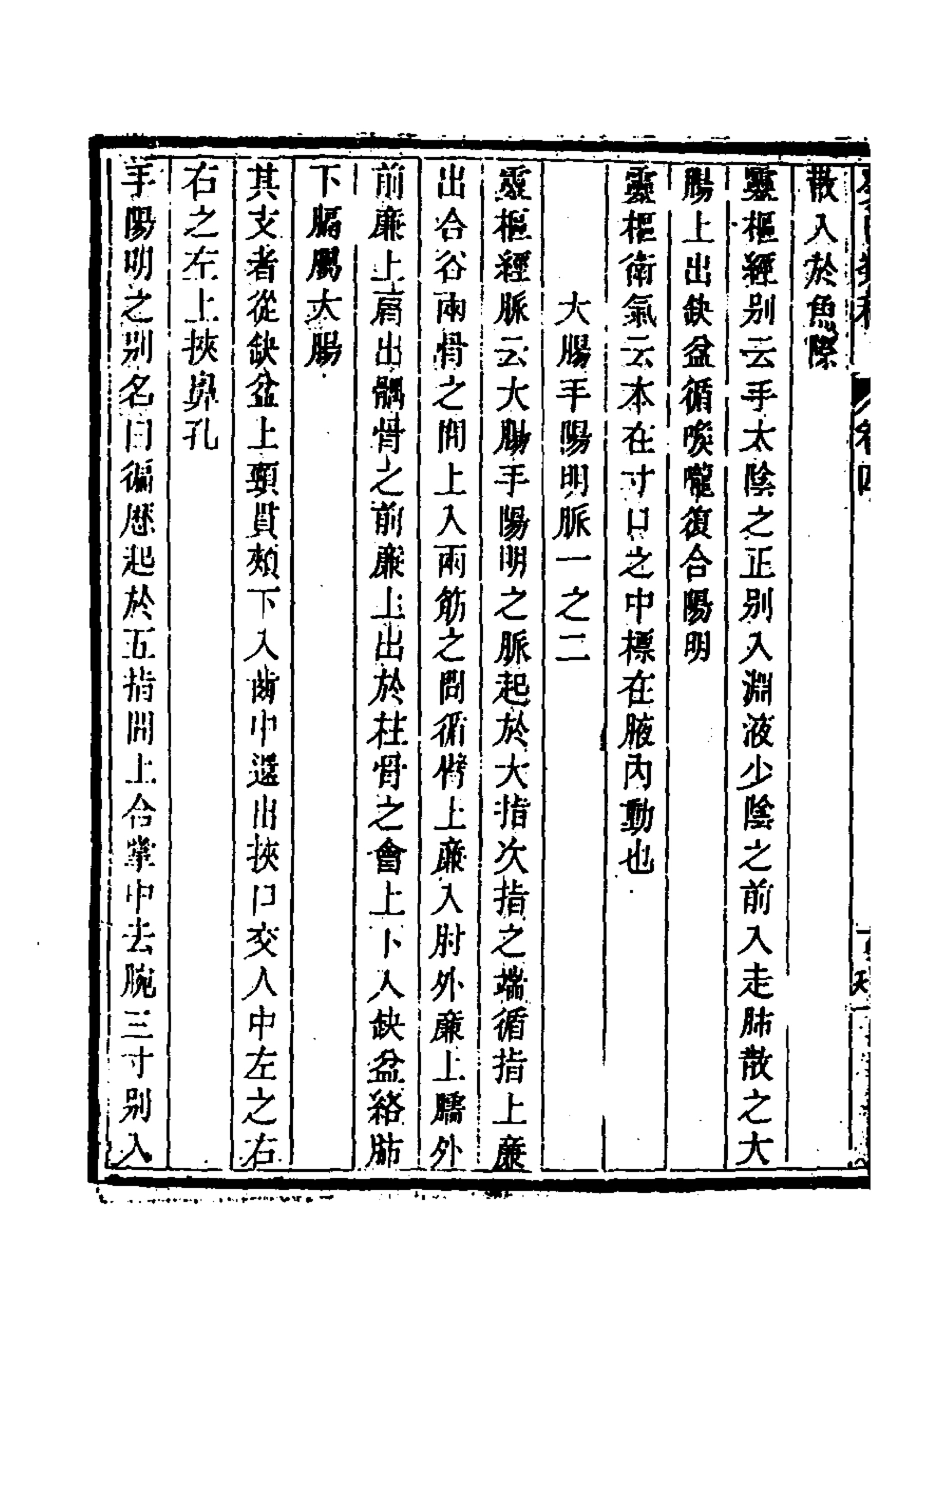 散入於魚際
靈樞經別云手太陰之正別入淵液少陰之前入走肺散之大
腸上出缺盆循喉嚨復合陽明
靈樞衛氣云本在寸口之中標在腋內動也
大腸手陽明脈一之二
靈樞經脈云大腸手陽明之脈起於大指次指之端循指上廉
出合谷兩骨之間上入兩筋之間循臂上廉入肘外廉上臑外
前廉上肩出髃骨之前廉上出於柱骨之會上下入缺盆絡肺
下膈屬大腸
其支者從缺盆上頸貫頰下入齒中還出挾口交人中左之右
右之左上挾鼻孔
手陽明之別名曰偏歷起於五指間上合掌中去腕三寸別入